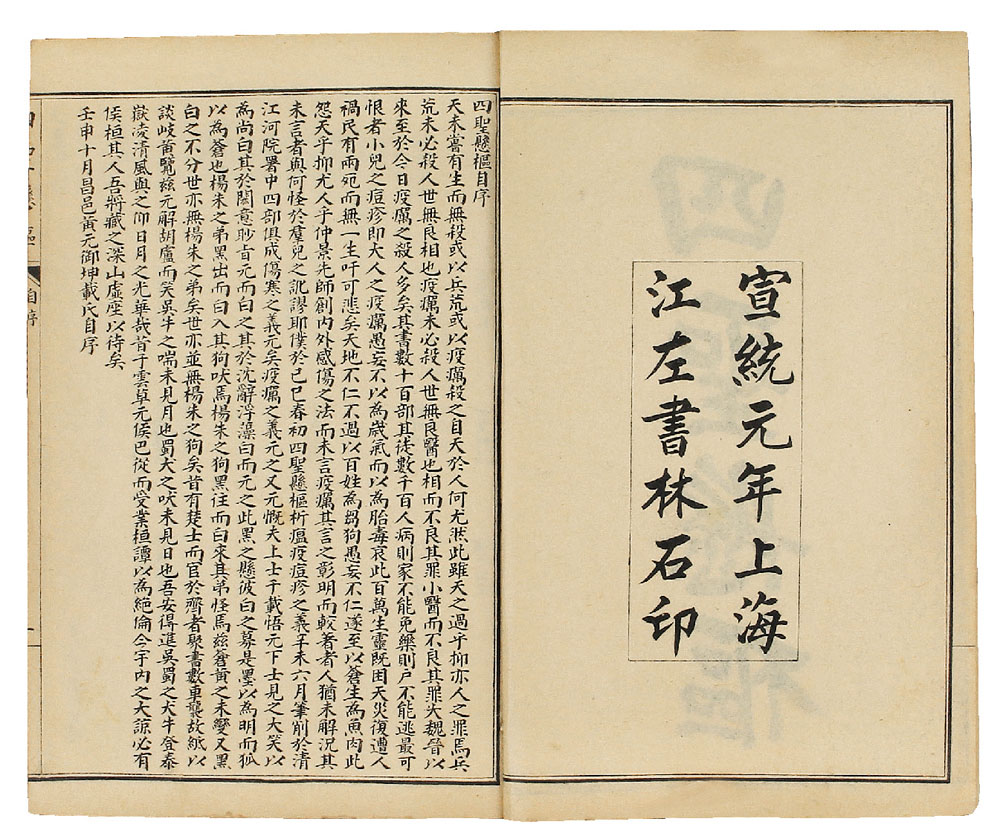 宣統元年上海
江左書林石印
四聖懸樞自序
天未嘗有生而無殺或以兵荒或以疫癘殺之自天於人何尤然此雖天之過乎抑亦人之罪焉兵
荒未必殺人世無良相也疫癘未必殺人世無良醫也相而不良其罪小醫而不良其罪大魏晉以
來至於今日疫厲之殺人多矣其書數十百部其徒數千百人病則家不能免藥則戶不能逃最可
恨者小兒之痘疹即大人之疫癘愚妄不以為歲氣而以為胎毒哀此百萬生靈既困天災復遭人
禍民有兩死而無一生吁可悲矣天地不仁不過以百姓為芻狗愚妄不仁遂至以蒼生為魚肉此
怨天乎抑尤人乎仲景先師創內外感傷之法而未言疫癘其言之彰明而較著者人猶未解況其
未言者與何怪於羣兒之訛謬耶僕於己巳春初四聖懸樞析瘟疫痘疹之義辛未六月筆削於清
江河院署中四部俱成傷寒之義元矣疫癘之義元之又元慨夫上士千載悟元下士見之大笑以
為尚白其於闕意眇旨元而白之其於沈辭浮藻白而元之此黑之懸彼白之募是墨以為明而狐
以為蒼也楊朱之弟黑出而白入其狗吠焉楊朱之狗黑往而白來其弟怪焉茲蒼黃之未變又黑
白之不分世亦無楊朱之弟矣世亦並無楊朱之狗矣昔有楚士而官於齊者聚書數車襲故紙以
談岐黃覽茲元解胡盧而笑吳牛之喘未見月也蜀犬之吠未見日也吾安得進吳蜀之犬牛登泰
嶽凌清風與之仰日月之光華哉昔子雲草元侯巴從而受業桓譚以為絕倫今宇內之大諒必有
侯桓其人吾將藏之深山虛座以待矣
壬申十月昌邑黃元御坤載氏自序
自序
一